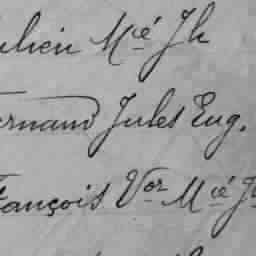 ulien M^ié Jh
ernand Jules Eug.
François V^or M^ié J